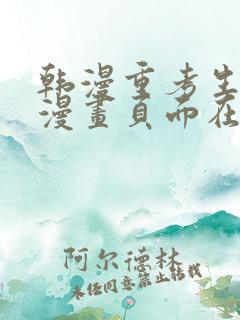 韩漫重考生
漫畫页而在
阿尔德林
未经同意禁止转载